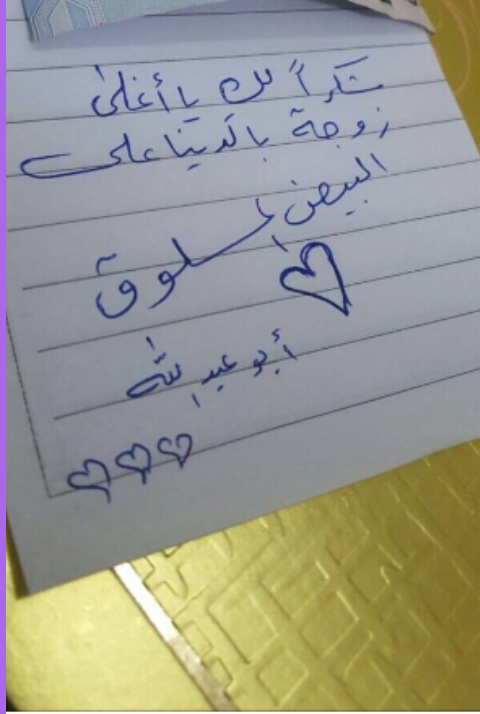 شكراً لك يا أغلى
زوجة بالدينا على
البيض المسلوق
أبو عبدالله